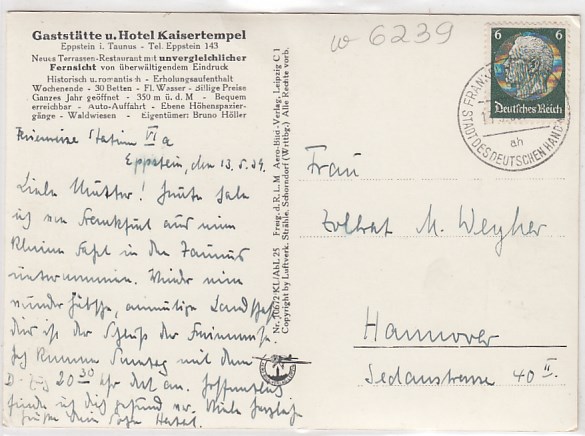 Gaststätte u. Hotel Kaisertempel
Eppstein i. Taunus - Tel. Eppstein 143
Neues Terrassen-Restaurant mit unvergleichlicher
Fernsicht von überwältigendem Eindruck
Historisch u. romantisch - Erholungsaufenthalt
Wochenende - 30 Betten - Fl. Wasser - zivile Preise
Ganzes Jahr geöffnet - 350 m ü. d. M - Bequem
erreichbar - Auto-Auffahrt - Ebene Höhenspazier-
gänge - Waldwiesen - Eigentümer: Bruno Höller
w 6239
6 6
Deutsches Reich
FRANK
STADT DES DEUTSCHEN HAND
ah
Station VI a
Eppstein, den 13.5.39.
Liebe Mutter! Heute habe
ich von Frankfurt aus eine
kleine Fahrt in den Taunus
unternommen. Wieder eine
wunderhübsche, anmutige Landschaft
Dies ist der Schluß der Ferienreise
Ich komme Sonntag mit dem
D-Zug 20 30 Uhr dort an. Hoffentlich
finde ich Dich gesund vor. Viele herzliche
Grüße Dein Sohn
Nr. 10672 KL/Abl. 25 Freig. d. R. L. M Aero-Bild-Verlag, Leipzig C 1
Copyright by Luftverk. Strähle, Schorndorf (Wrttbg.) Alle Rechte vorb.
Frau
Zollrat M. Weyher
Hannover
Sedanstrasse 40 II.